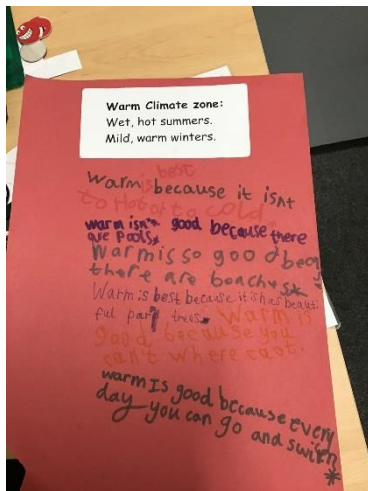 Warm Climate zone:
Wet, hot summers.
Mild, warm winters.
best
Warm is because it isnt
to Hot or to cold
warm isn't good because there
are pools
Warm is so good beca
there are beaches
Warm is best because it is has beauti
ful parp trees. Warm is
good because you
can't where coat.
warm Is good because every
day you can go and swim